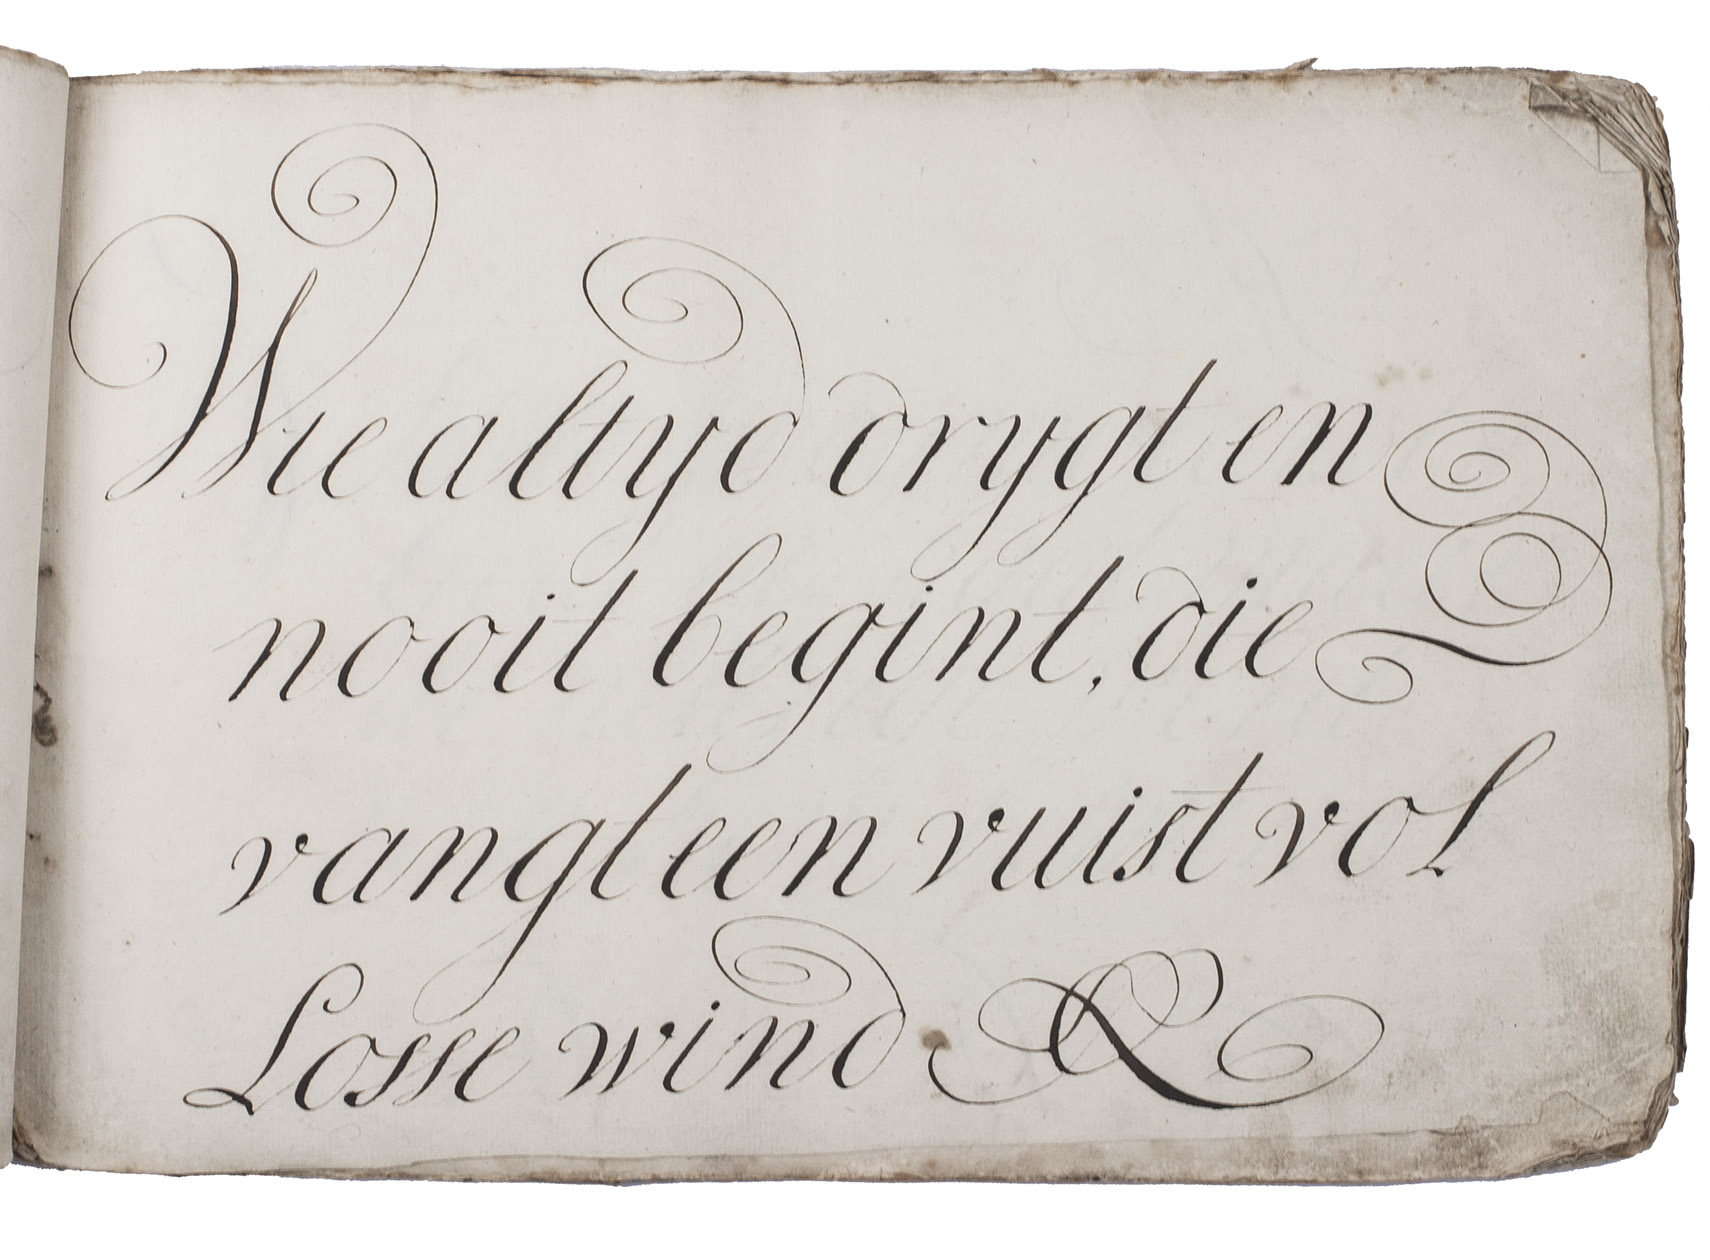 Wie altyd drygt en
nooit begint, die
vangt een vuist vol
Losse wind &